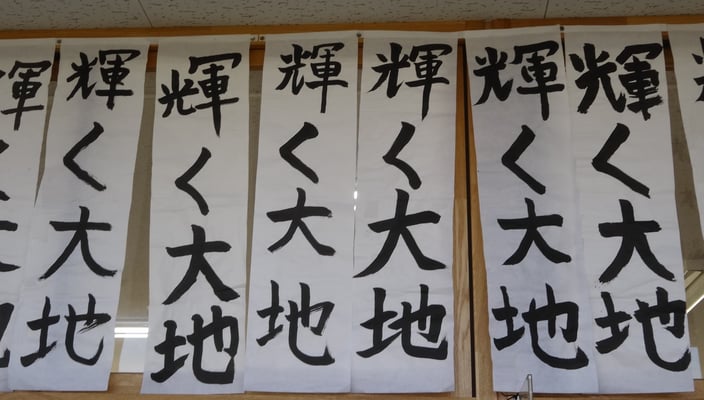 輝く大地
輝く大地
輝く大地
輝く大地
輝く大地
輝く大地
輝く大地